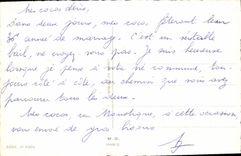 mes cocos chéris,
Dans deux jours, mes cocos, fêteront leur
36° année de mariage. C'est un véritable
bail, ne croyez vous pas. Je suis heureuse
lorsque je pense à votre vie commune, tou-
jours côte à côte, au chemin que vous avez
parcouru tous les deux.
Mes cocos, cette occasion,
vous envoie de gros bisous